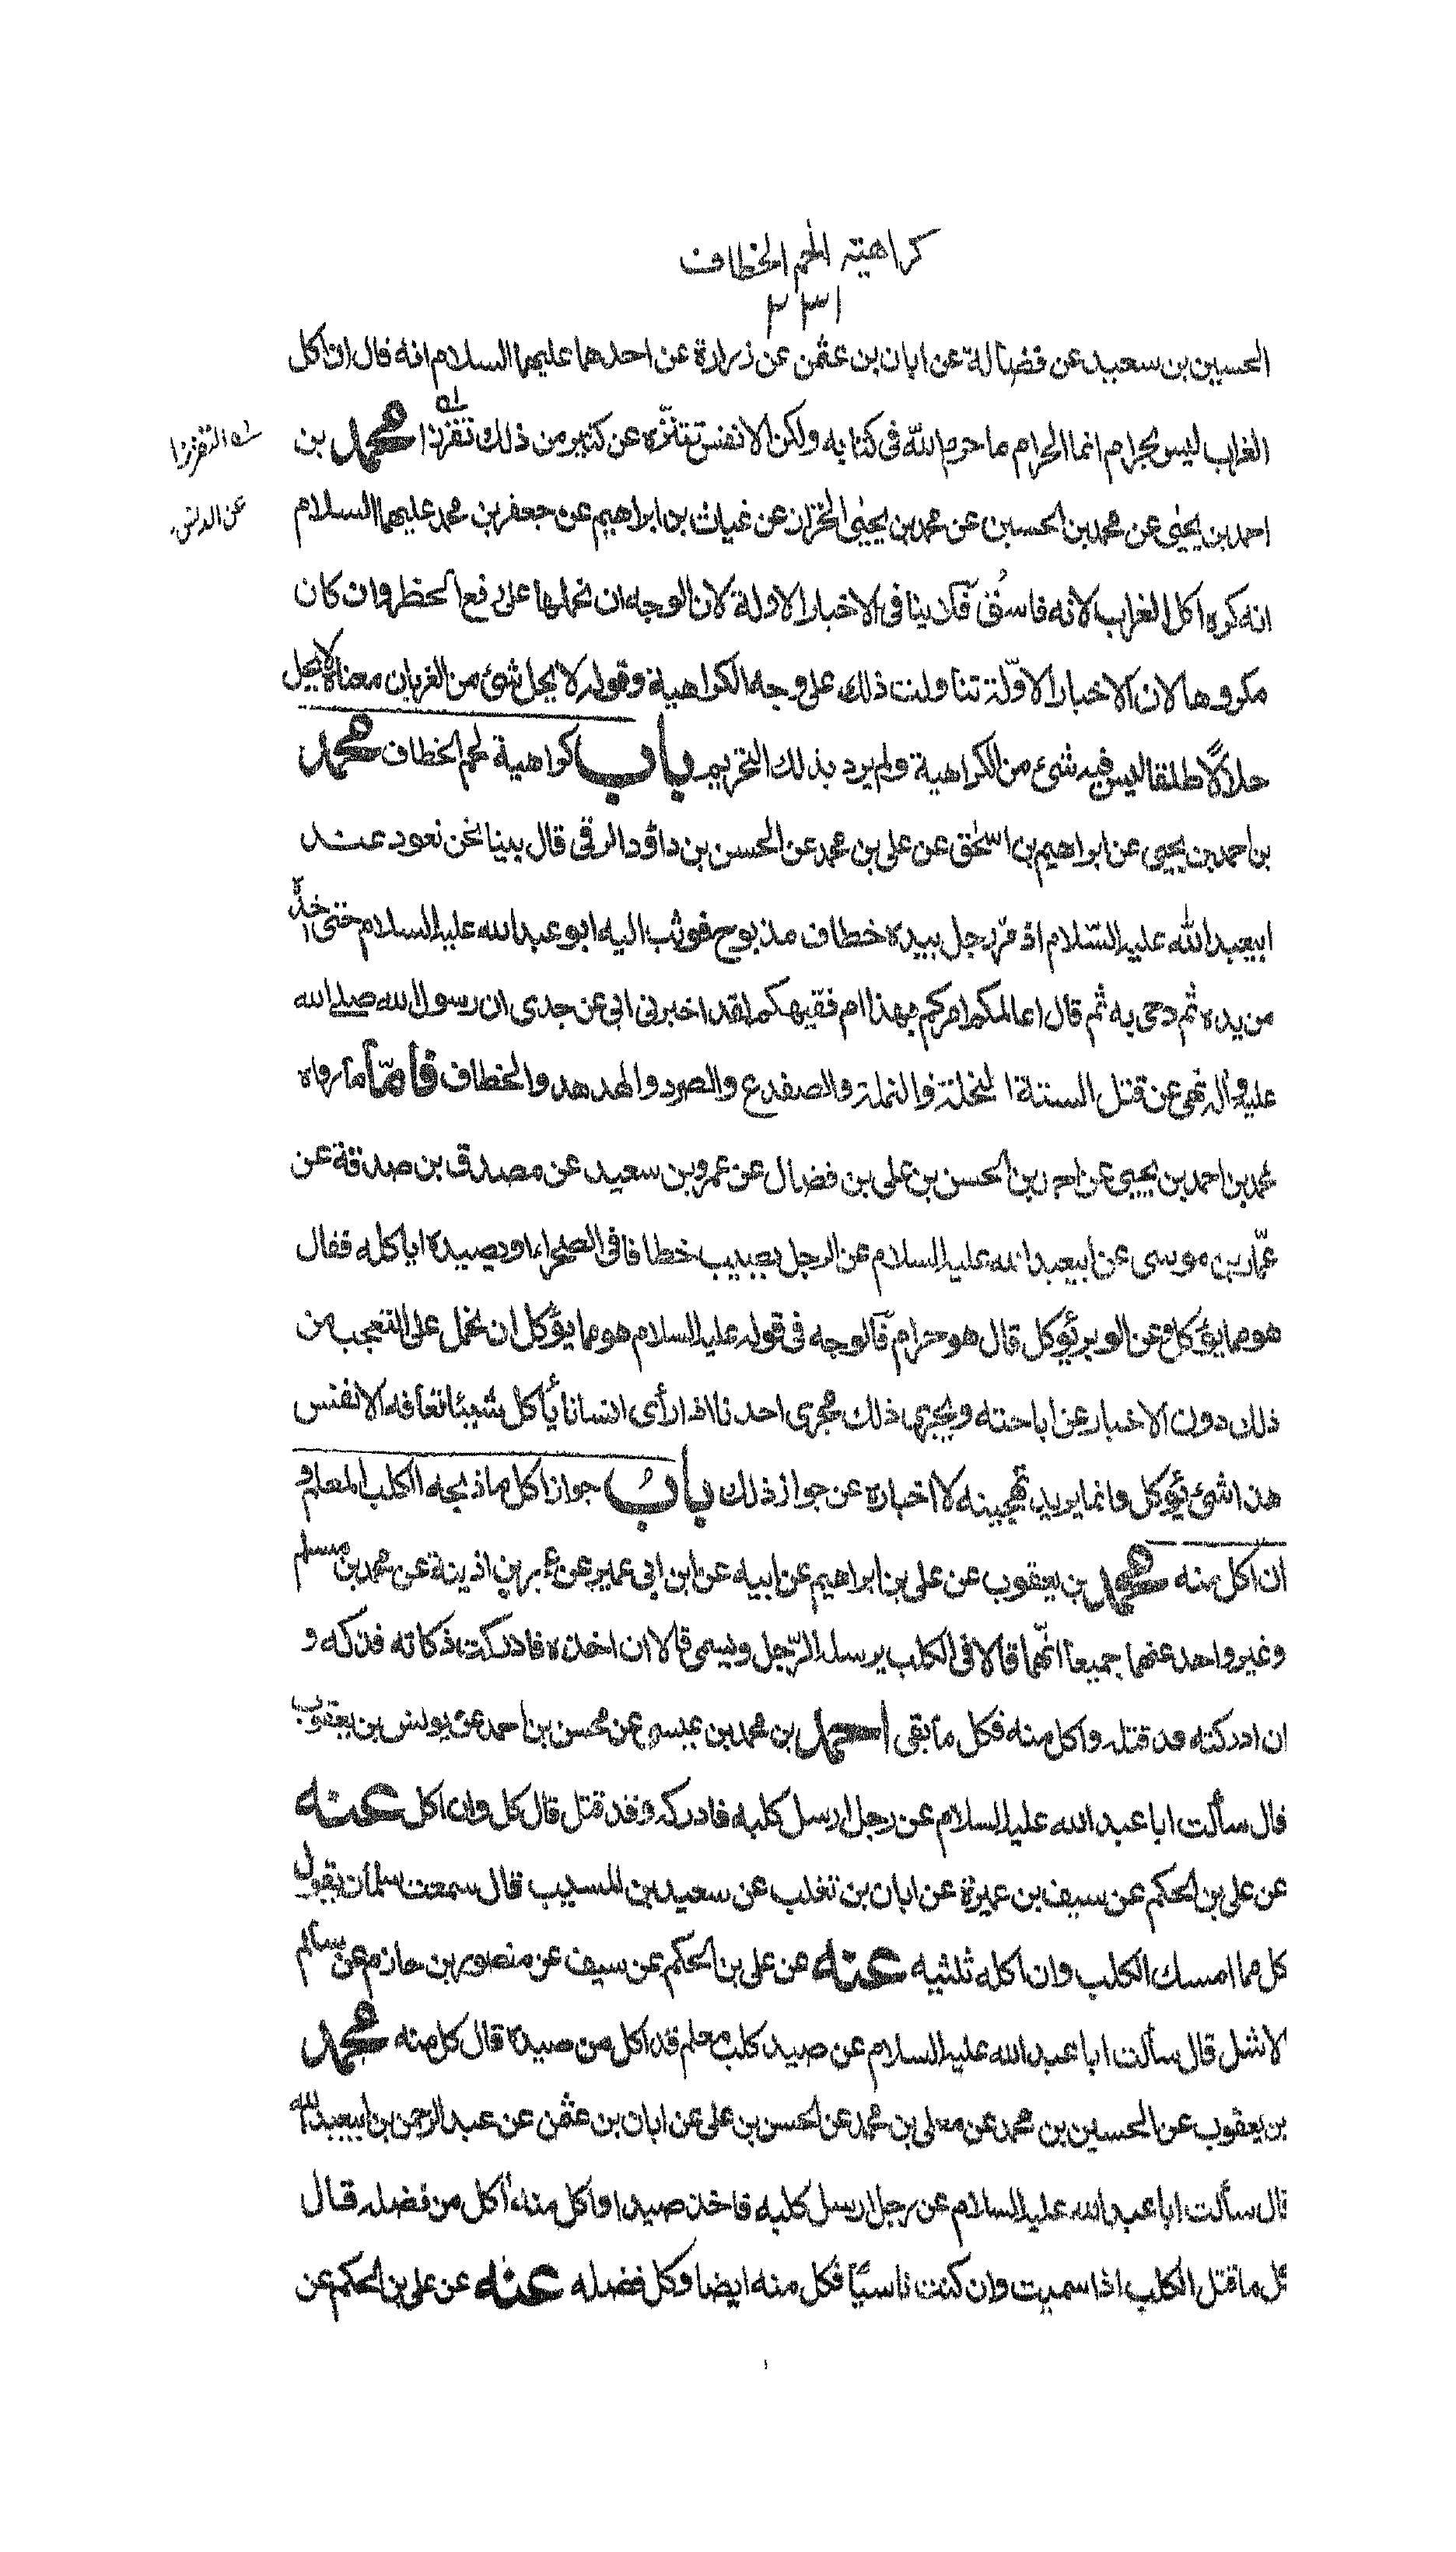 كراهية لحم الخطاف
٢٣١
الحسين بن سعيد عن فضالة عن ابان بن عثمن عن زرارة عن احدهما عليهما السلام انه قال ان اكل
الغراب ليس بحرام انما الحرام ما حرم اللّه في كتابه ولكن الانفس تتنزّه عن كثير من ذلك تقززا محمد بن
التقززا
عن الدنس
احمد بن يحيى عن محمد بن الحسين عن محمد بن يحيى الخزاز عن غياث بن ابراهيم عن جعفر بن محمد عليهما السلام
انه كره اكل الغراب لانه فاسق فلا ينافي الاخبار الاولة لان الوجه ان نحملها على رفع الحظر وان كان
مكروها لان الاخبار الاوّلة تناولت ذلك على وجه الكراهية وقوله لا يحل شئ من الغربان معناه لا يحل
حلالاً طلقا ليس فيه شئ من الكراهية ولم يرد بذلك التحريم باب كراهية لحم الخطاف محمد
بن احمد بن يحيى عن ابراهيم بن اسحق عن على بن محمد عن الحسن بن داؤد الرقى قال بينا نحن نعود عند
ابيعبد اللّه عليه السّلام اذ مرّ رجل بيده خطاف مذبوح فوثب اليه ابو عبد الله عليه السلام حتى اخذه
من يده ثم دحى به ثم قال اعالمكم امركم بهذا ام فقيهكم لقد اخبرنى ابى عن جدى ان رسول الله صلى الله
عليه وآله نهى عن قتل الستة النحلة والنملة والضفدع والصرد والهدهد والخطاف فامّا ما رواه
محمد بن احمد بن يحيى عن احمد بن الحسن بن على بن فضال عن عمرو بن سعيد عن مصدق بن صدقة عن
عمّار بن موسى عن ابيعبد الله عليه السلام عن الرجل يصيب خطافا فى الصحراء او يصيده اياكله فقال
هو مما يؤكل وعن الوبر يؤكل قال هو حرام فالوجه فى قوله عليه السلام هو مما يؤكل ان نحمل على التعجب من
ذلك دون الاخبار عن اباحته ويجرى ذلك مجرى احدنا اذا رأى انسانا يأكل شيئا تعافه الانفس
هذا شئ يؤكل وانما يريد تهجينه لا اخباره عن جواز ذلك باب جواز اكل ما ذبحه الكلب المعلم و
ان اكل منه محمد بن يعقوب عن على بن ابراهيم عن ابيه عن ابن ابى عمير عن عمر بن اذينة عن محمد بن مسلم
وغير واحد عنهما جميعا انّهما قالا فى الكلب يرسله الرّجل ويسمى قالا ان اخذه فادركت ذكاته فذكه و
ان ادركته وقد قتله واكل منه فكل ما بقى احمد بن محمد بن عيسى عن محسن بن احمد عن يونس بن يعقوب
قال سألت ابا عبد الله عليه السلام عن رجل ارسل كلبه فادركه وقد قتل قال كل وان اكل عنه
عن على بن الحكم عن سيف بن عميرة عن ابان بن تغلب عن سعيد بن المسيب قال سمعت سلمان يقول
كل مما امسك الكلب وان اكله ثلثيه عنه عن على بن الحكم عن سيف عن منصور بن حازم عن سالم
الاشل قال سألت ابا عبد الله عليه السلام عن صيد كلب معلم قد اكل من صيده قال كل منه محمد
بن يعقوب عن الحسين بن محمد عن معلى بن محمد عن الحسن بن على عن ابان بن عثمن عن عبد الرحمن بن ابيعبد الله
قال سألت ابا عبد الله عليه السلام عن رجل ارسل كلبه فاخذ صيدا واكل منه اكل من فضله قال
كل ما قتل الكلب اذا سميت وان كنت ناسيًا فكل منه ايضا وكل فضله عنه عن على بن الحكم عن